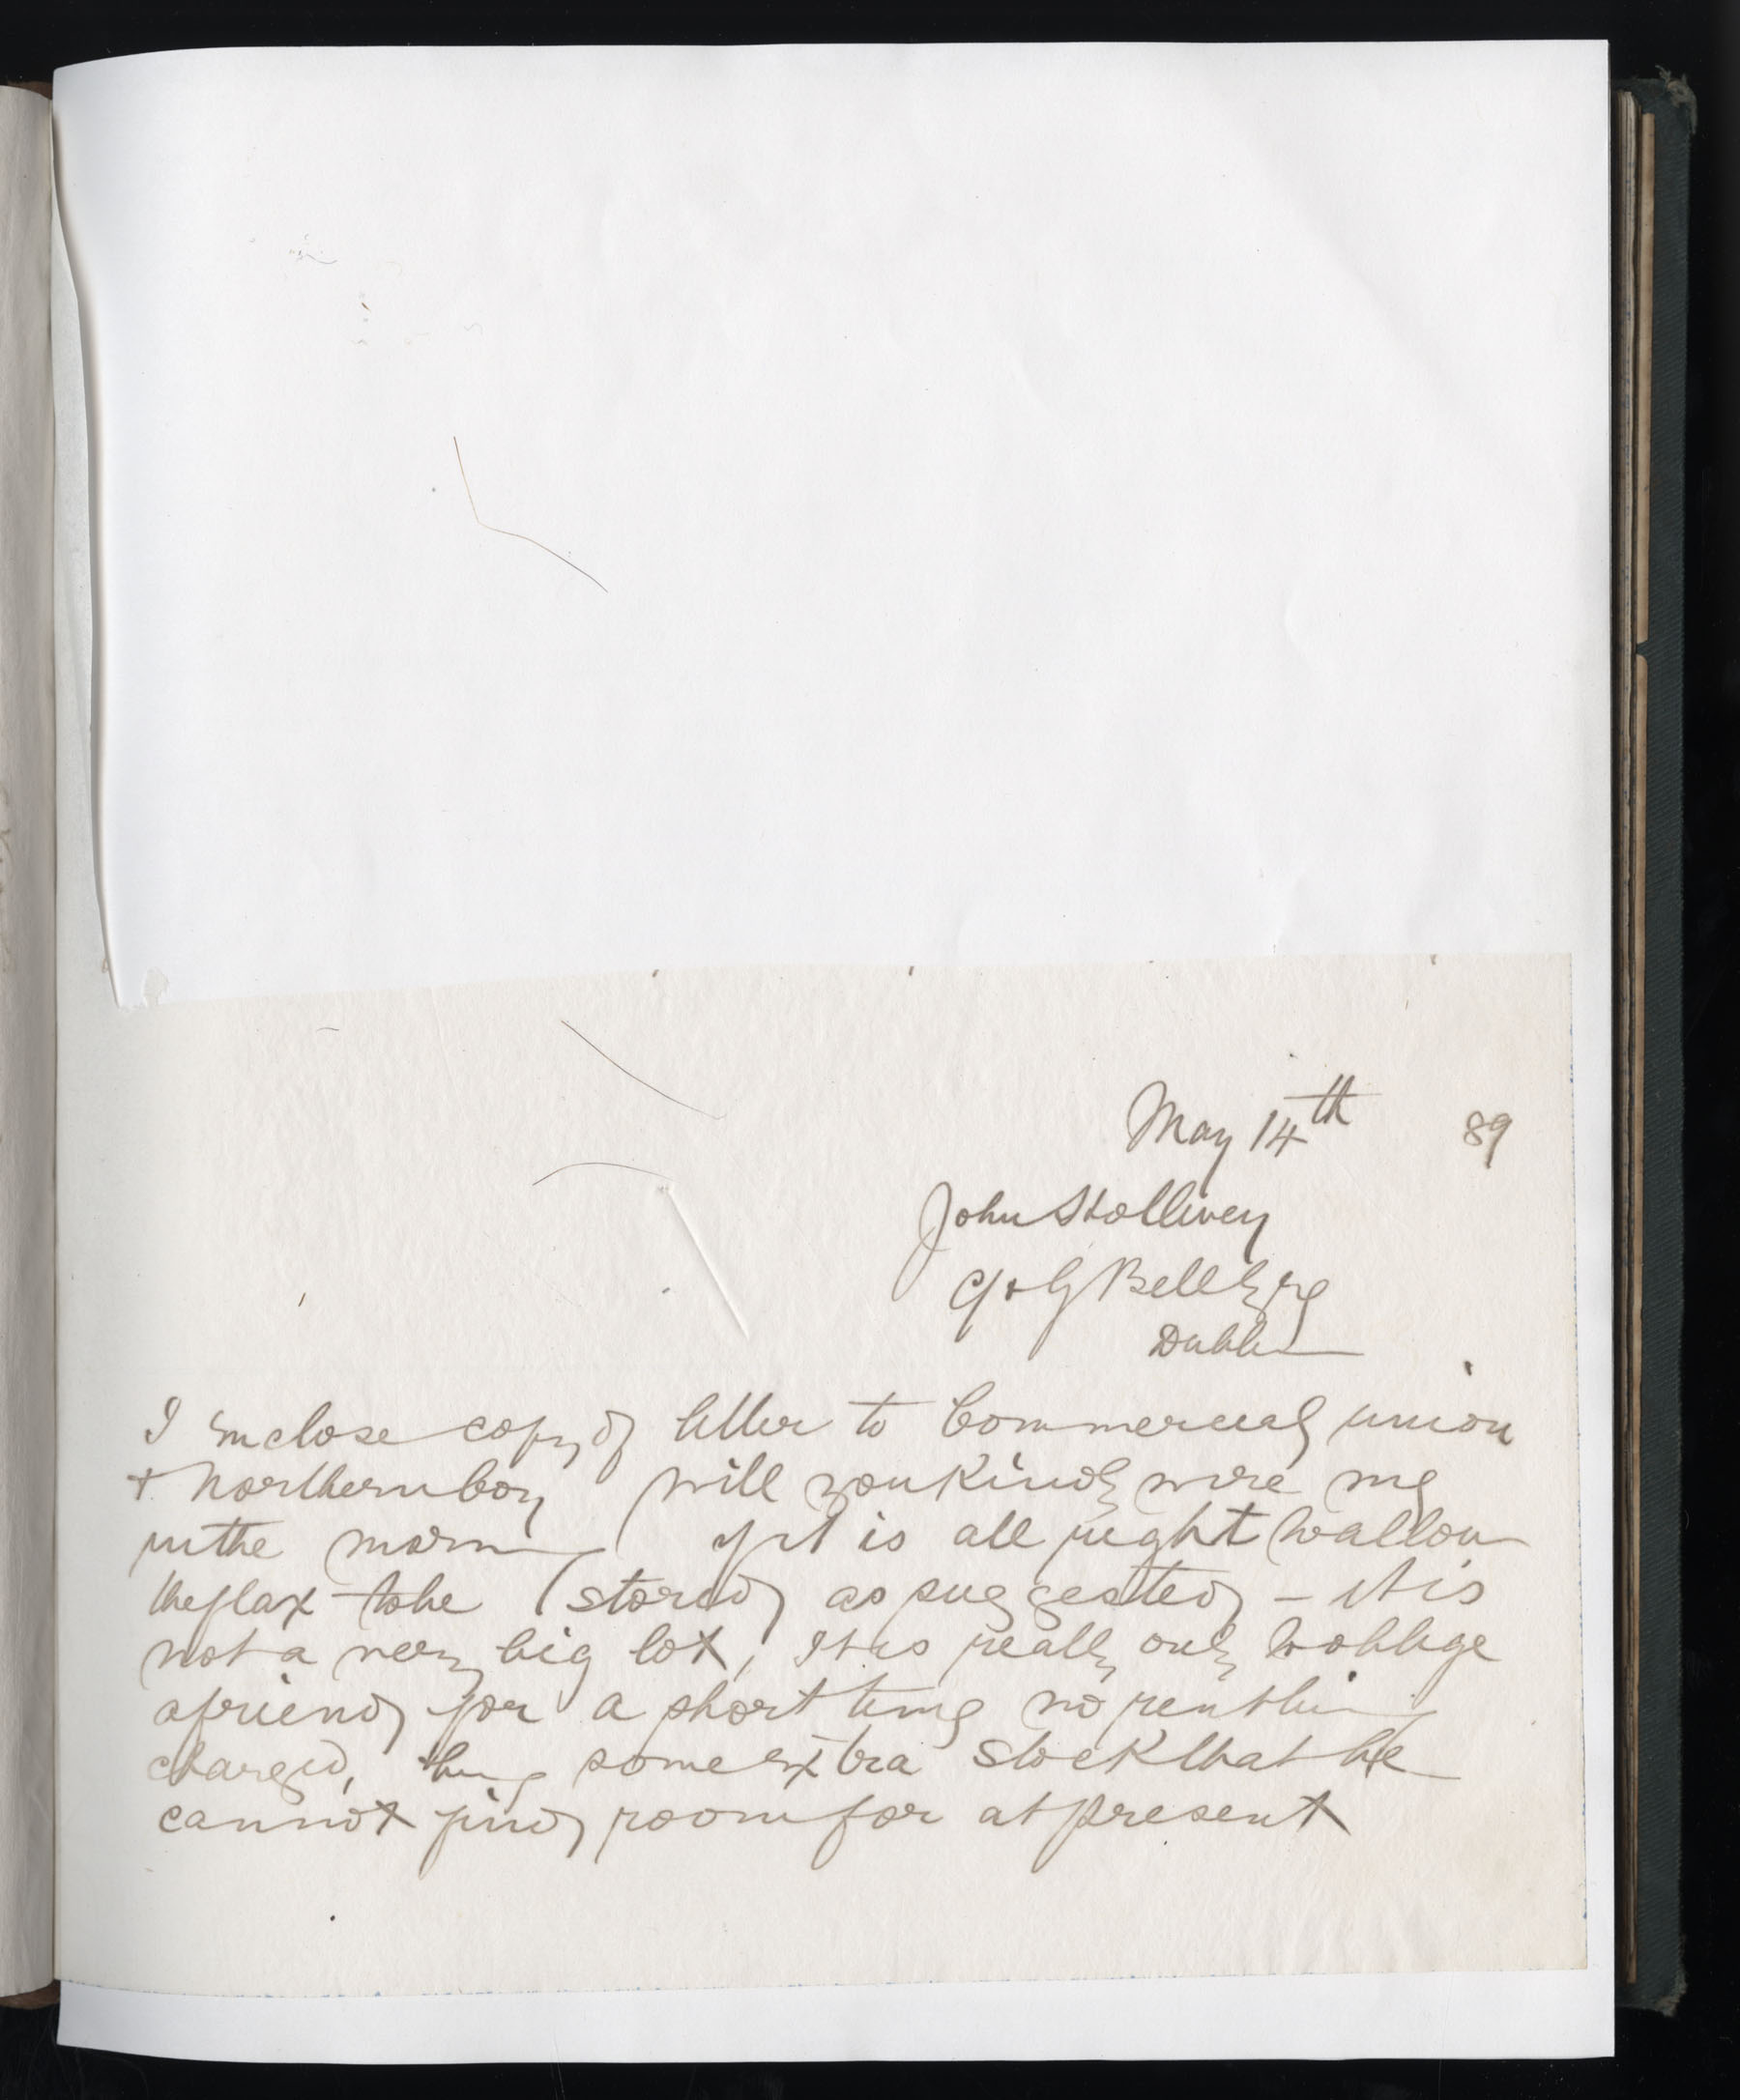 May 14th 89
John Hollivey
C & G Bell Esq
Dublin
I enclose copy of letter to Commercial union
+ Northern Coy will you kindly wire me
in the morning if it is all right to allow
the flax to be stored as suggested - it is
not a very big lot, It is really only to oblige
a friend for a short time no rent being
charged, being some extra stock that he
cannot find room for at present